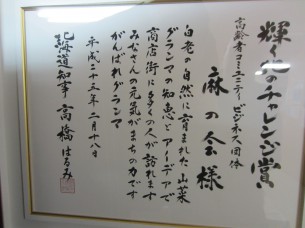 輝く北のチャレンジ賞
高齢者コミュニティビジネス団体
麻の会様
白老の自然に育まれた山菜
グランマの知恵とアイデアで
商店街に多くの人が訪れます
みなさんの元気がまちの力です
がんばれグランマ
平成二十三年二月十八日
北海道知事 高橋はるみ